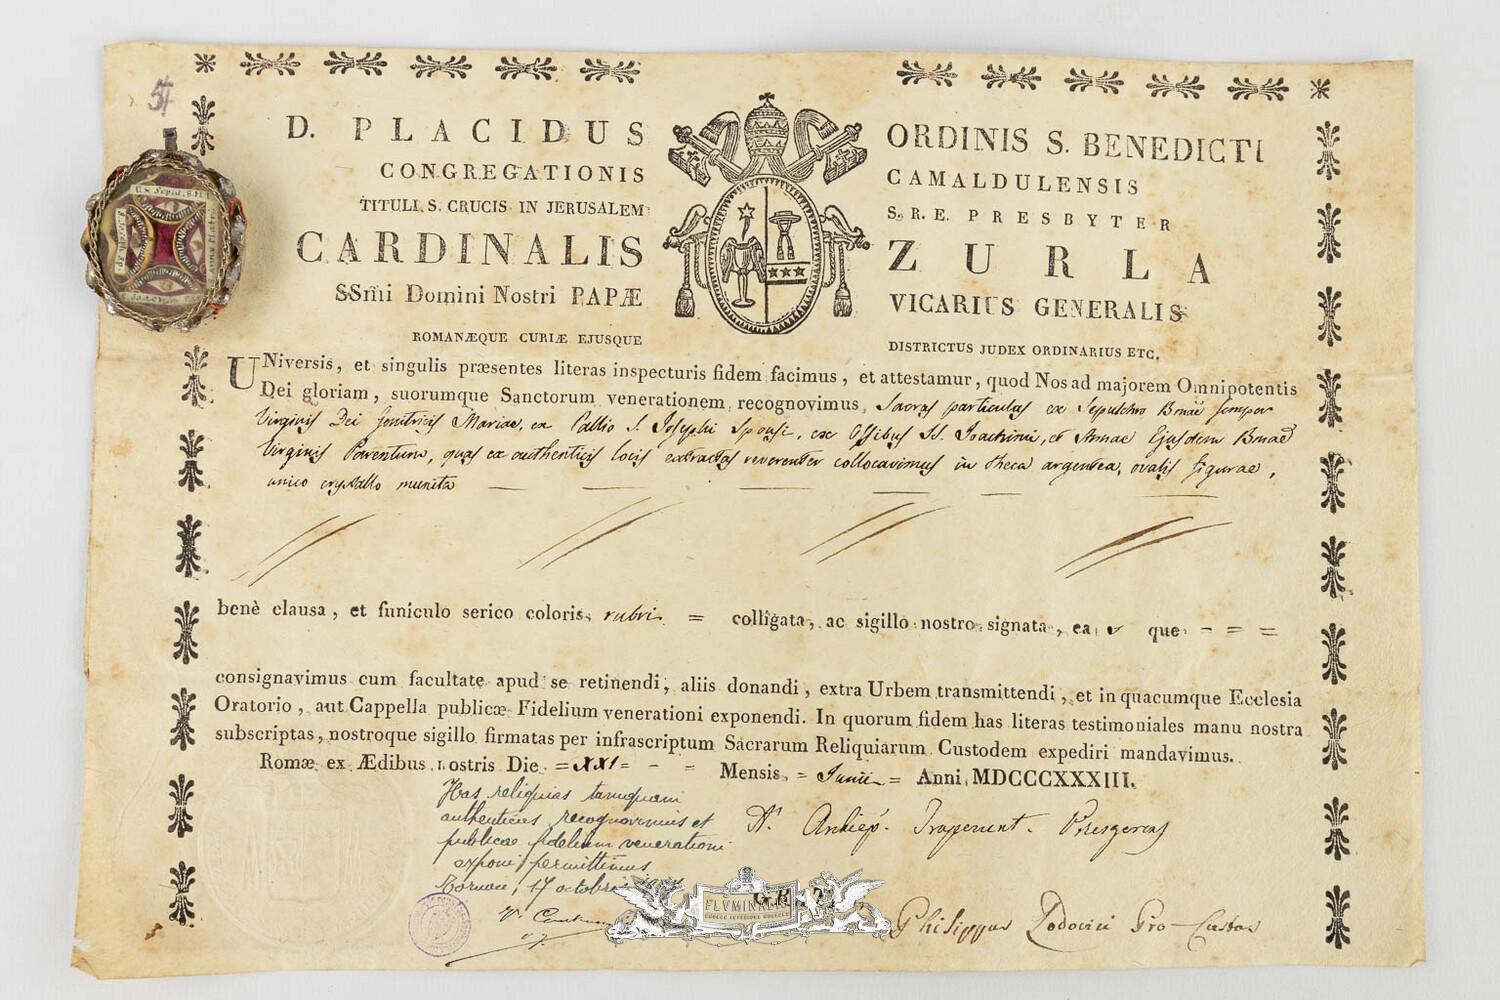 54
D. PLACIDUS ORDINIS S. BENEDICTI
CONGREGATIONIS CAMALDULENSIS
TITULI S. CRUCIS IN JERUSALEM S. R. E. PRESBYTER
CARDINALIS ZURLA
SSmi Domini Nostri PAPÆ VICARIUS GENERALIS
ROMANÆQUE CURIÆ EJUSQUE DISTRICTUS JUDEX ORDINARIUS ETC.
UNiversis, et singulis præsentes literas inspecturis fidem facimus, et attestamur, quod Nos ad majorem Omnipotentis
Dei gloriam, suorumque Sanctorum venerationem recognovimus Sacras particulas ex Sepulchro Bmae semper
Virginis Dei Genitricis Mariae, ex Pallio S. Josephi Sponsi, ex Ossibus SS. Joachimi, et Annae Ejusdem Bmae
Virginis Parentum, quas ex authenticis locis extractas reverenter collocavimus in theca argentea, ovalis figurae,
unico crystallo munita
benè clausa, et funiculo serico coloris rubri = colligata, ac sigillo nostro signata, ea que = = =
consignavimus cum facultate apud se retinendi, aliis donandi, extra Urbem transmittendi, et in quacumque Ecclesia
Oratorio, aut Cappella publicæ Fidelium venerationi exponendi. In quorum fidem has literas testimoniales manu nostra
subscriptas, nostroque sigillo firmatas per infrascriptum Sacrarum Reliquiarum Custodem expediri mandavimus.
Romæ ex Ædibus nostris Die = XXI = - = Mensis = Junii = Anni MDCCCXXXIII.
Has reliquias tamquam
authenticas recognovimus et
publicae fidelium venerationi
exponi permittimus
17 octobris
A. Archiep. Trapezunt. Vicesgerens
GRATIS
Philippus Lodovici Pro-Custos
FLVMINALIS
Ex Sepul. B.M.
Annæ Matr.
S. Joachim
S. Joseph Sp.